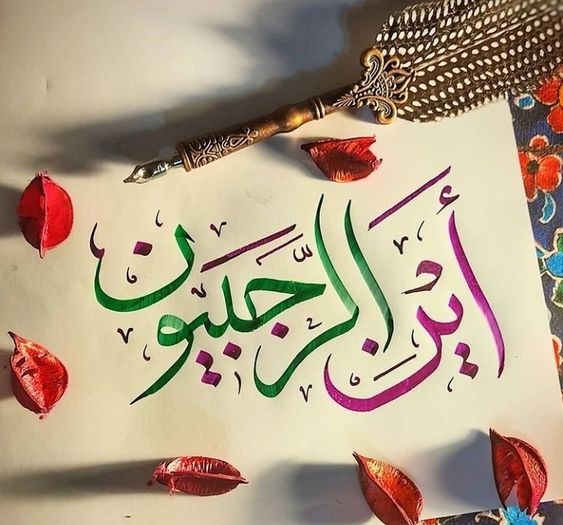 أين الرّجبيون